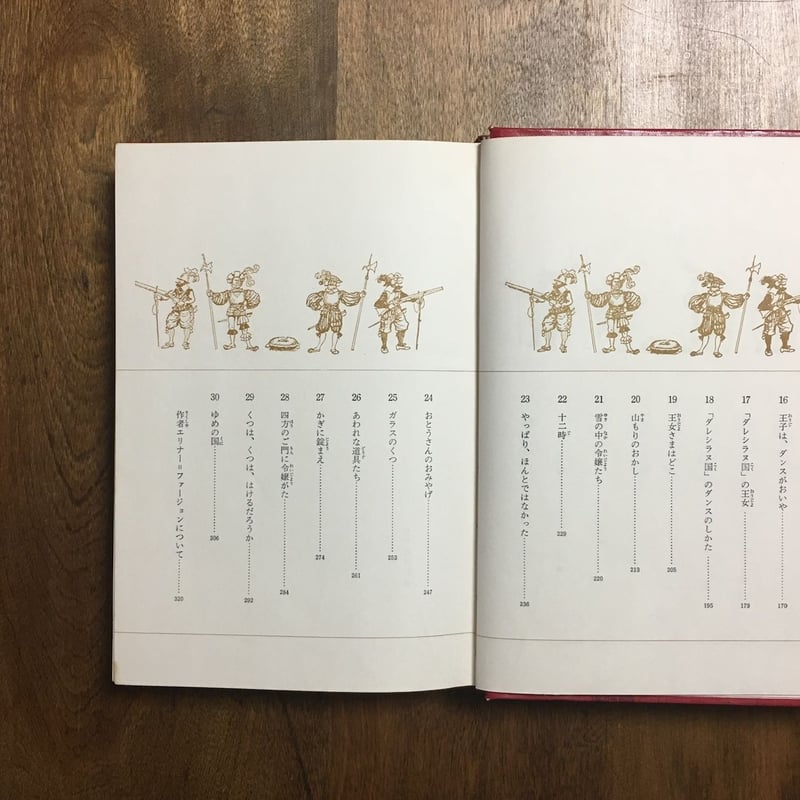 16 王子は、ダンスがおいや 170
17 「ダレシラヌ国」の王女 179
18 「ダレシラヌ国」のダンスのしかた 195
19 王女さまはどこ 205
20 山もりのおかし 213
21 雪の中の令嬢たち 220
22 十二時 229
23 やっぱり、ほんとではなかった 236
24 おとうさんのおみやげ 247
25 ガラスのくつ 252
26 あわれな道具たち 261
27 かぎに錠まえ 274
28 四方のご門に令嬢がた 284
29 くつは、くつは、はけるだろうか 292
30 ゆめの国 306
作者エリナー=ファージョンについて 320